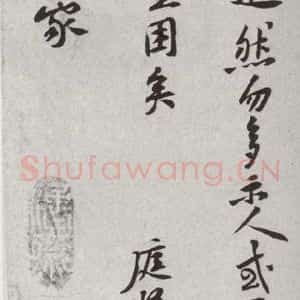 然勿多示人或
困矣
庭
家
Shufawang.CN